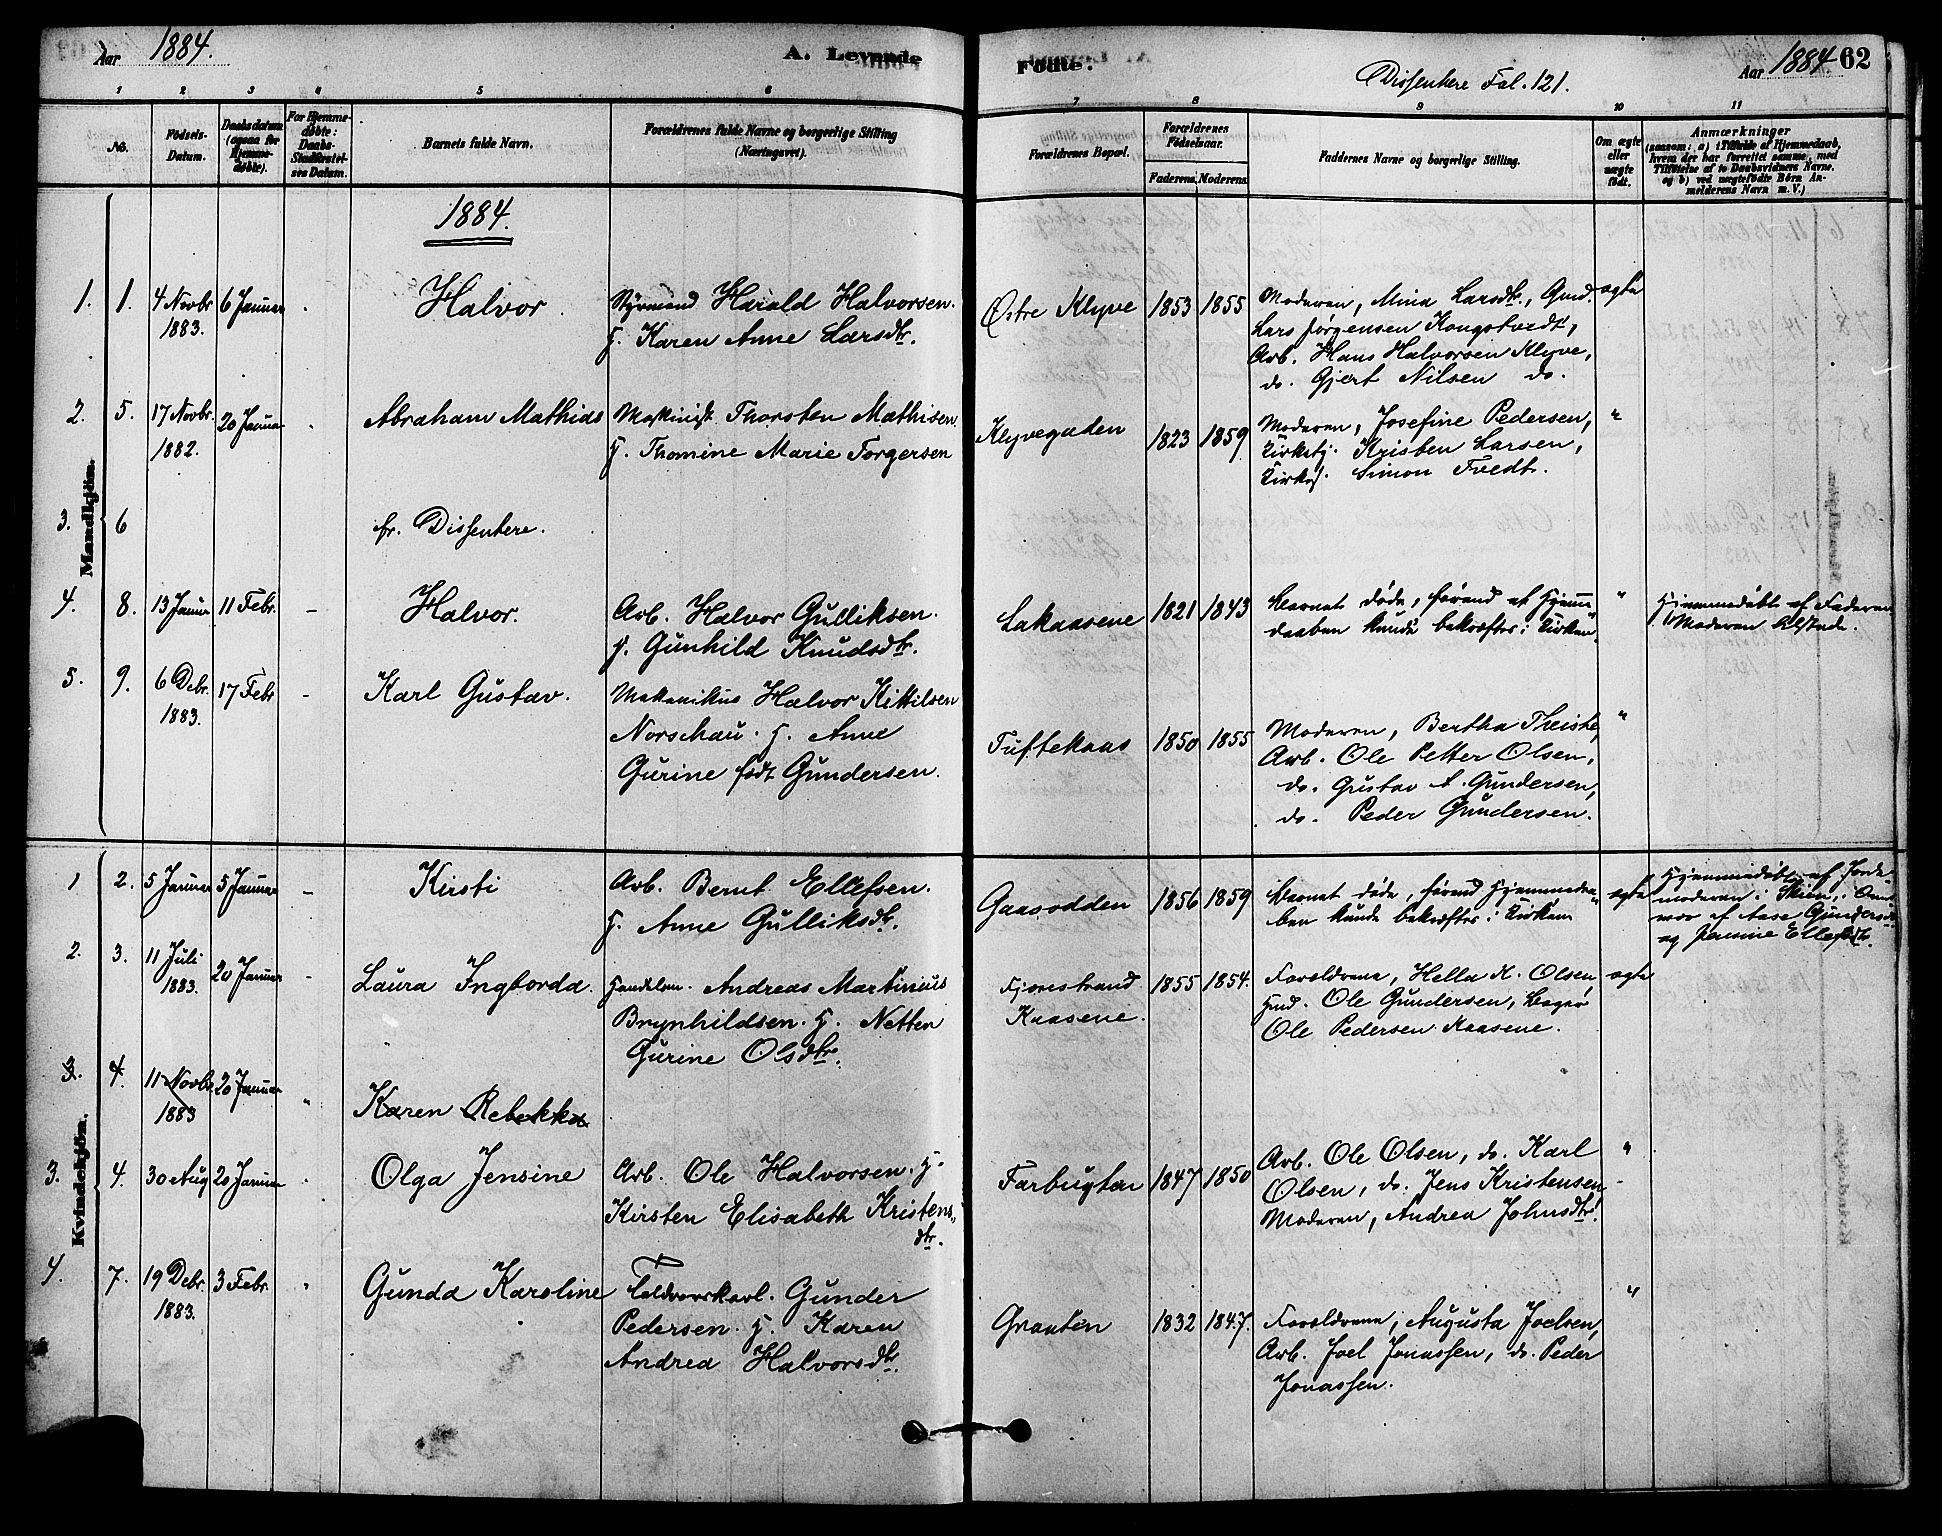 Aar 1884.
A. Levende
Fødte.
Dissentere Fol. 121.
Aar 1884. 62
1 2 3 4 5 6 7 8 9 10 11
No.
Fødsels-
Datum.
Daabsdatum
(ogsaa for
Hjemme-
døbte).
For Hjemme-
døbte:
Daabs-
Stadfæstel-
ses Datum.
Barnets fulde Navn.
Forældrenes fulde Navne og borgerlige Stilling
(Næringsvei).
Forældrenes Bopæl.
Forældrenes
Fødselsaar.
Faderens. Moderens.
Faddernes Navne og borgerlige Stilling.
Om ægte
eller
uægte
født.
Anmærkninger
(saasom: a) i Tilfælde af Hjemmedaab,
hvem der har forrettet samme, med
Tilføielse af to Daabsvidners Navne.
og b) ved uægtefødte Børn An-
melderens Navn m. V.)
Mandkjøn.
1884.
1. 1. 4 Novbr 1883. 6 Januar Halvor
Styrmand Harald Halvorsen.
H. Karen Anne Larsdtr.
Østre Klyve 1853 1855
Moderen, Mina Larsdtr, Gmd.
Lars Jørgensen Kongstvedt,
Arb. Hans Halvorsen Klyve,
do. Gjert Nilsen do.
ægte
2. 5. 17 Novbr. 1882. 20 Januar Abraham Mathias
Maskinist Thorsten Mathisen.
H. Thomine Marie Torgersen
Klyvegaden 1823 1859
Moderen, Josefine Pedersen,
Kirkebtj. Kristen Larsen,
Simon Tvedt.
"
3. 6 fr. Dissentere.
4. 8. 13 Januar 11 Febr. – Halvor.
Arb. Halvor Gulliksen.
H. Gunhild Knudsdtr.
Lakaasene 1821 1843
Barnet døde, førend af Hjemme-
daaben kunde bekræftes i Kirken
"
Hjemmedøbt af Faderen
Moderen tilstede.
5. 9. 6 Debr. 1883. 17 Febr – Karl Gustav.
Mekanikus Halvor Kittilsen
Norschau. H. Anne
Gurine født Gundersen.
Tuftekaas 1850 1855
Moderen, Bertha Theiste,
Arb. Ole Petter Olsen,
do. Gustav A. Gundersen,
do. Peder Gundersen.
"
Kvindekjøn.
1 2. 5 Januar 5 Januar – Kirsti
Arb. Bernt Ellefsen.
H. Anne Gulliksdtr.
Gaasodden 1856 1859
Barnet døde, førend Hjemmedaa-
ben kunde bekræftes i Kirken
ægte
Hjemmedøbt af Jorde-
moderen i Skien,
af Aase Gundersdtr
og Jensine Ellefsdtr.
2. 3. 11 Juli 1883. 20 Januar – Laura Ingborda.
Handelsm. Andreas Martinius
Brynhildsen. H. Netten
Gurine Olsdtr.
Fjærestrand
Kaasene.
1855 1854.
Forældrene, Hella K. Olsen,
Gmd. Ole Gundersen,
Ole Pedersen Kaasene.
ægte
3. 4. 11 Novbr 1883 20 Januar " Karen Rebekka
3. 4. 30 Aug 20 Januar Olga Jensine
Arb. Ole Halvorsen. H.
Kirsten Elisabeth Kristens-
dtr.
Farbugten 1847 1850
Arb. Ole Olsen, do. Karl
Olsen, do. Jens Kristensen
Moderen, Andrea Johnsdtr.
"
4. 7. 19 Debr. 1883. 3 Febr. " Gunda Karoline
Toldværkarl. Gunder
Pedersen. H. Karen
Andrea Halvorsdtr.
Graaten 1832 1847.
Forældrene, Augusta Joelsen,
Arb. Joel Jonassen, do. Peder
Jonassen.
"